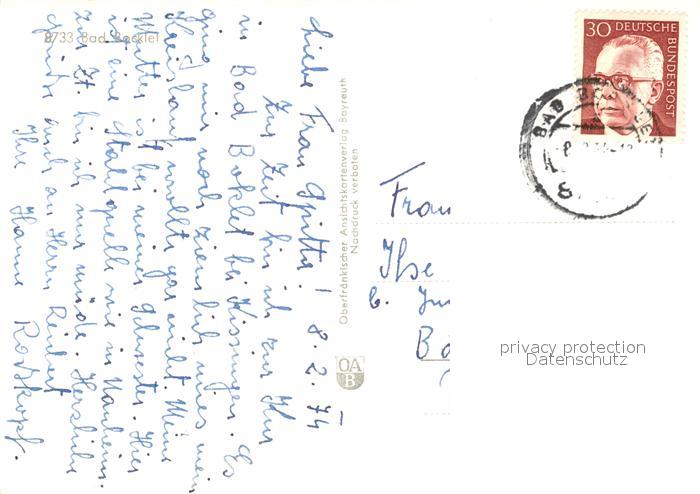 8733 Bad Bocklet
Liebe Frau 8.2.74
Zur Zeit bin ich zur Kur
in Bad Boklet bei Kissingen. Es
ging mir noch ziemlich mies mein
Kreislauf wollte gar nicht Meine
Mutter ist bei meiner Schwester. Hier
ist eine Stahlquelle wie in Nauheim.
Zur Zt. bin ich nur müde. Herzliche
Grüße auch an Herrn
Ihre Hanne
Oberfränkischer Ansichtskartenverlag Bayreuth
Nachdruck verboten
OA
B
30 DEUTSCHE
BUNDESPOST
BAD BO
8
Frau
Ilse
b.
privacy protection
Datenschutz